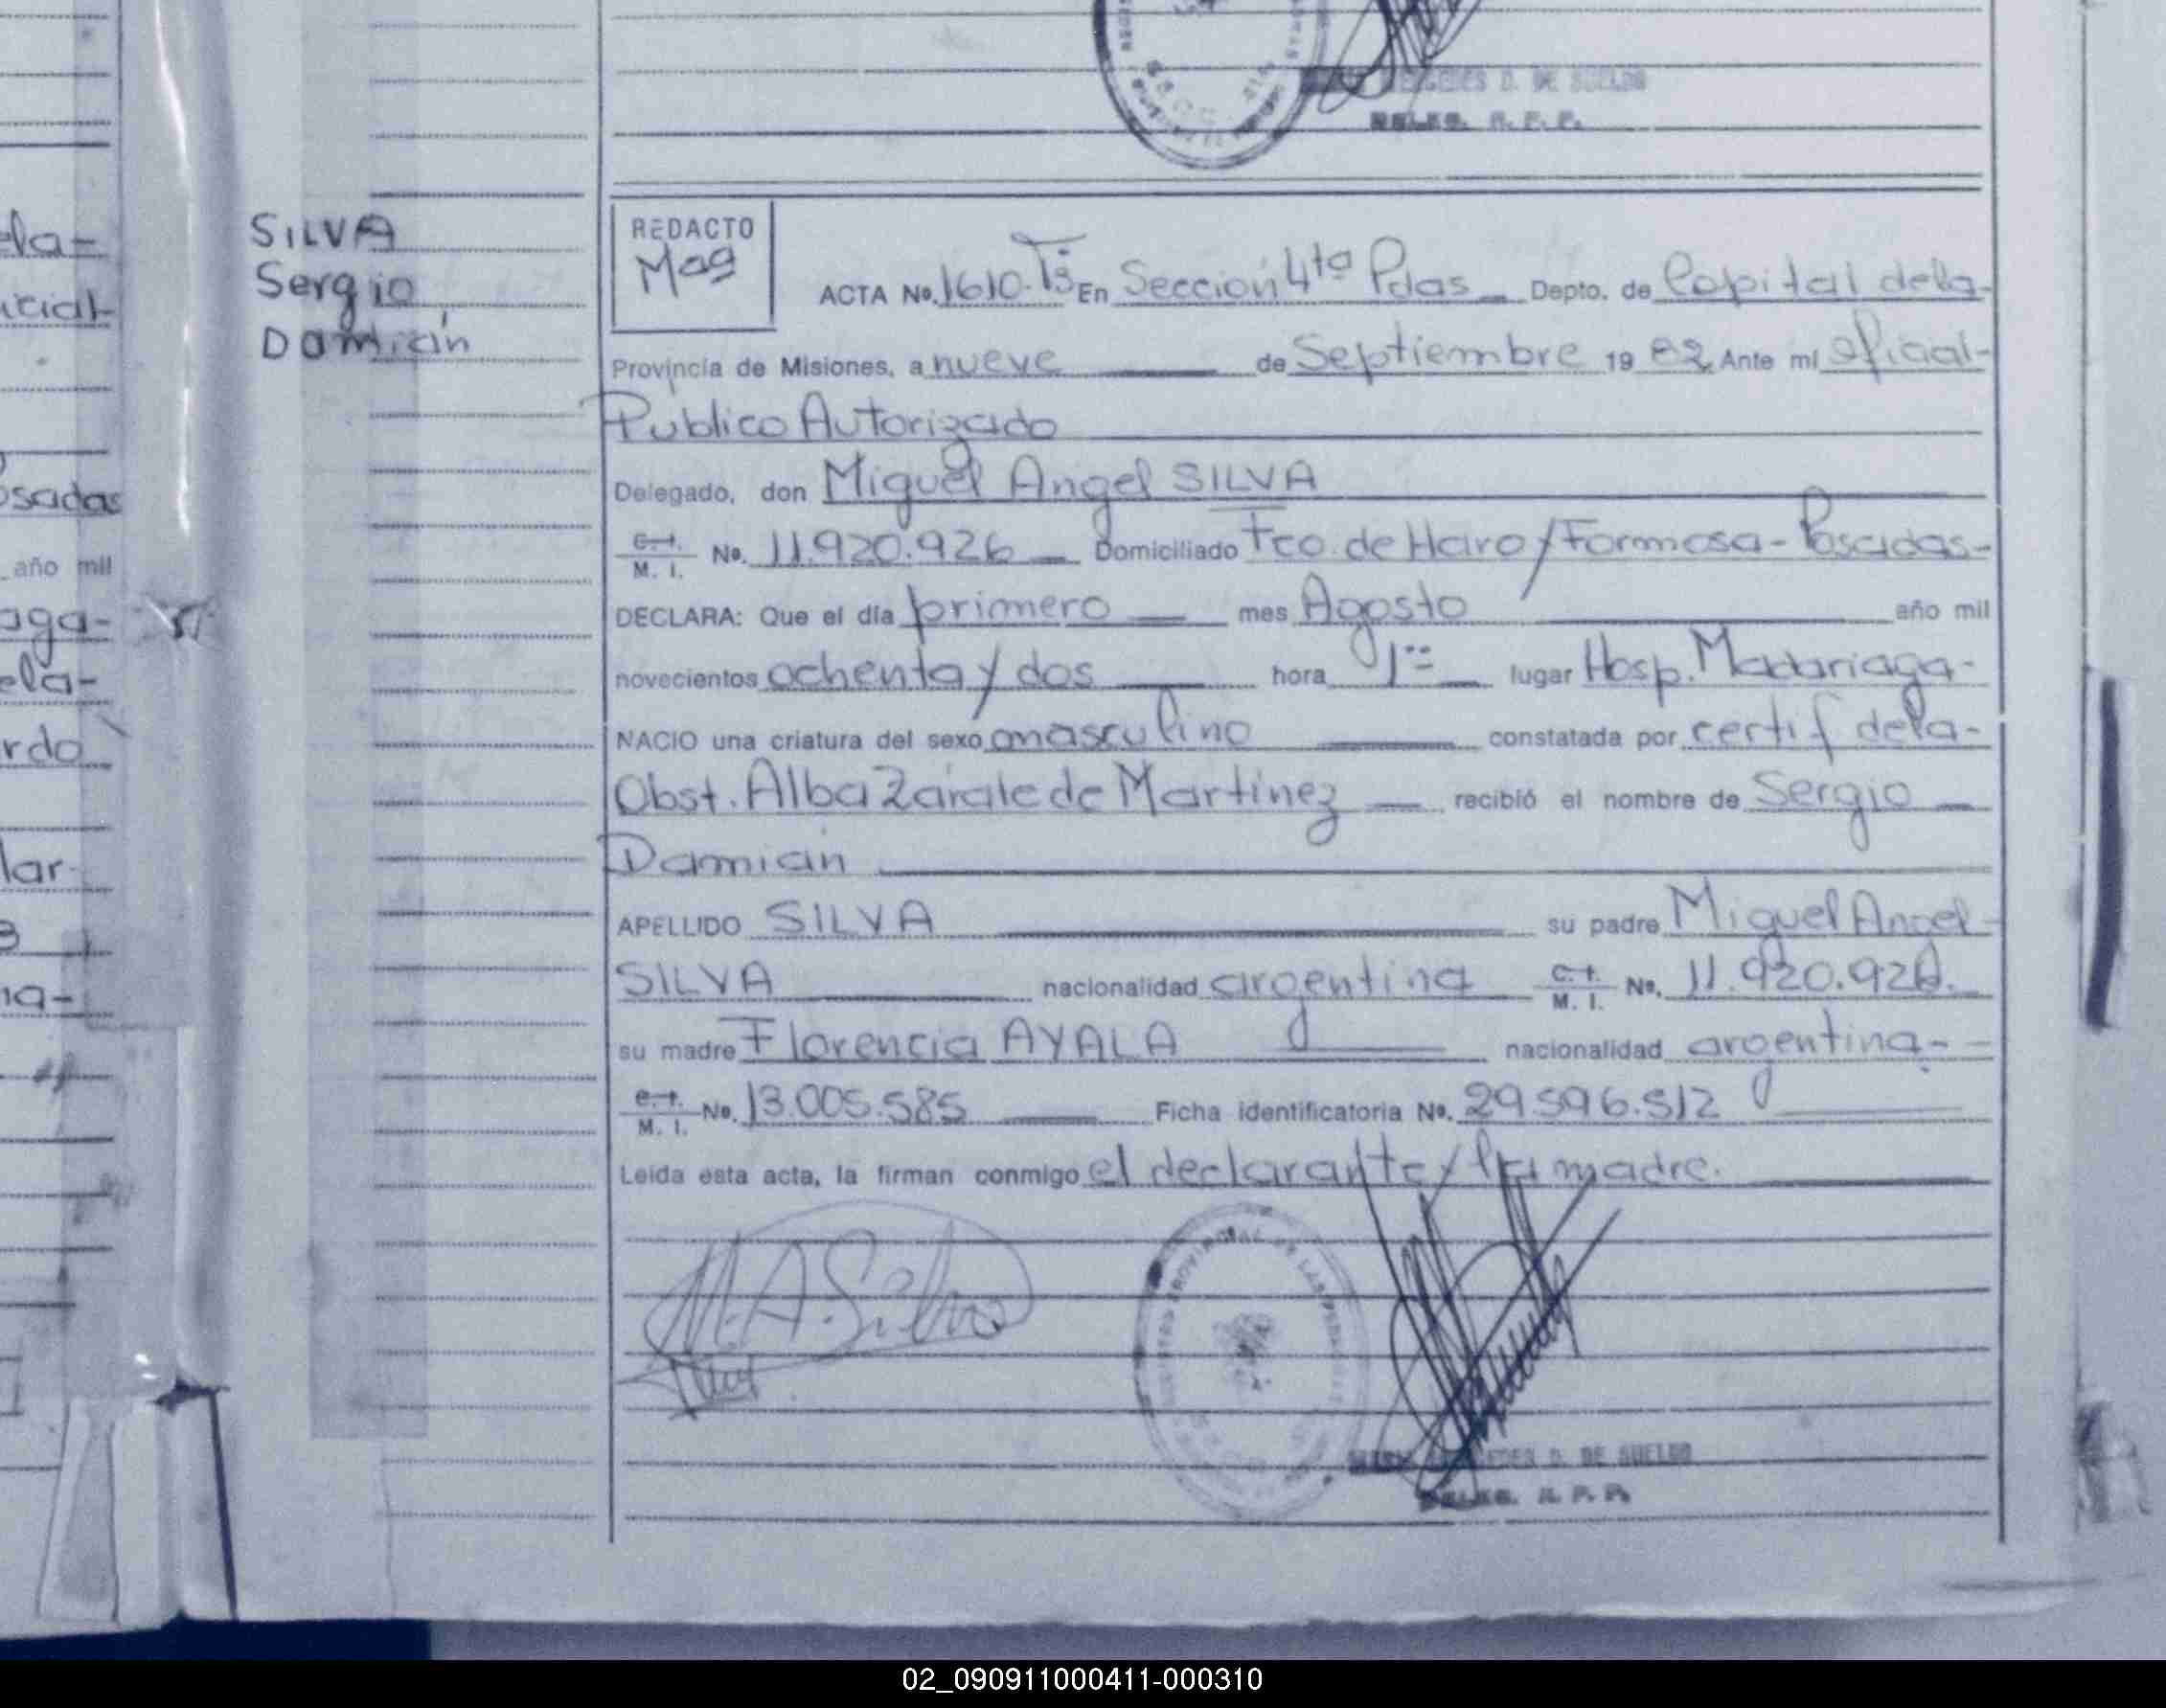 DE SUELDO
DELEG. R. P. P.
SILVA
Sergio
Damián
REDACTO
Mag
ACTA No. 1610-Tº3 En Sección 4ta Pdas Depto. de Capital de la-
Provincia de Misiones, a nueve de Septiembre 1982 Ante mí Oficial-
Publico Autorizado
Delegado, don Miguel Angel SILVA
C. I. M. I. No. 11.920.926 Domiciliado Fco. de Haro/Formosa-Posadas-
DECLARA: Que el día primero mes Agosto año mil
novecientos ochenta y dos hora 1 lugar Hosp. Madariaga-
NACIO una criatura del sexo masculino constatada por certif de la-
Obst. Alba Zárate de Martinez recibió el nombre de Sergio
Damián
APELLIDO SILVA su padre Miguel Angel-
SILVA nacionalidad argentina C. I. M. I. No. 11.920.926.
su madre Florencia AYALA nacionalidad argentina-
C. I. M. I. No. 13.005.585 Ficha identificatoria No. 29.596.512
Leída esta acta, la firman conmigo el declarante y la madre.
M.A.Silva
DE SUELDO
DELEG. R. P. P.
ela-
icial-
osadas
año mil
aga-
ela-
rdo
lar-
na-
02_090911000411-000310